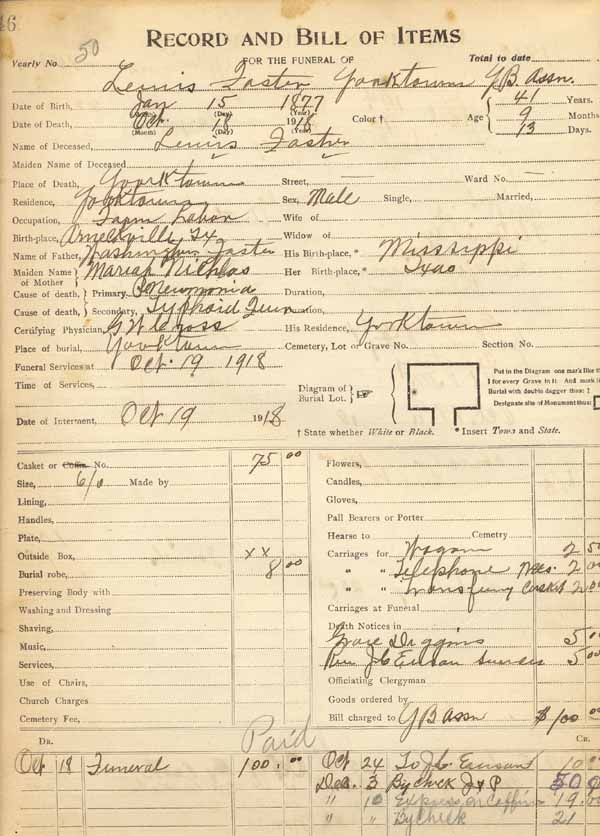 46
RECORD AND BILL OF ITEMS
Yearly No. 50 FOR THE FUNERAL OF Total to date
Lewis Faster Yorktown G B Assn.
Date of Birth, Jan 15 1877 41 Years.
(Month) (Day) (Year)
Date of Death, Oct. 18 1918 Color † Age 9 Months
(Month) (Day) (Year) 13 Days.
Name of Deceased, Lewis Faster
Maiden Name of Deceased
Place of Death, Yorktown Street, Ward No. —
Residence, Yorktown Sex, Male Single, Married,
Occupation, Farm Labor Wife of
Birth-place, Arneckville, Tx Widow of
Name of Father, Washington Faster His Birth-place,* Missippi
Maiden Name of Mother Mariah Nicholas Her Birth-place,* Txas
Cause of death, Primary, Pneumonia Duration,
Cause of death, Secondary, Typhoid Duration,
Certifying Physician, G W Cross His Residence, Yorktown
Place of burial, Yorktown Cemetery, Lot or Grave No. Section No.
Funeral Services at Oct. 19 1918
Time of Services,
Diagram of Burial Lot.
Put in the Diagram one mark like th
I for every Grave in it. And mark
Burial with double dagger thus: ‡
Designate site of Monument thus:
Date of Interment, Oct 19 1918
† State whether White or Black. * Insert Town and State.
Casket or Coffin No. 75 00 Flowers,
Size, 6/0 Made by Candles,
Lining, Gloves,
Handles, Pall Bearers or Porter
Plate, Hearse to Cemetry
Outside Box, x x Carriages for Wagon 2 50
Burial robe, 8 00 " " Telephone Mes. 2 00
Preserving Body with " " Casket 2 00
Washing and Dressing Carriages at Funeral
Shaving, Death Notices in
Music, Grave Diggins 5 00
Services, Rev. J C 5 00
Use of Chairs, Officiating Clergyman
Church Charges Goods ordered by
Cemetery Fee, Bill charged to G B Assn $100 00
Paid
DR. CR.
Oct 18 Funeral 100 .00 Oct 24 To J C 10
Dec. 3 By Check 50 0
" 10 Express on Coffin 19.00
" " By Check 21